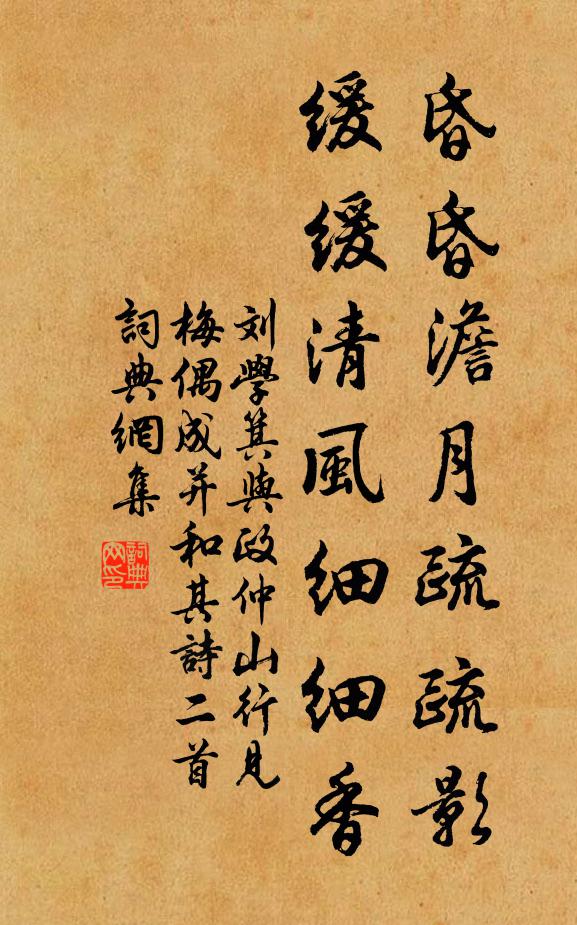 昏昏澹月疏疏影
緩緩清風細細香
刘學箕與政仲山行見
梅偶成并和其詩二首
詞典網集
詞典网印